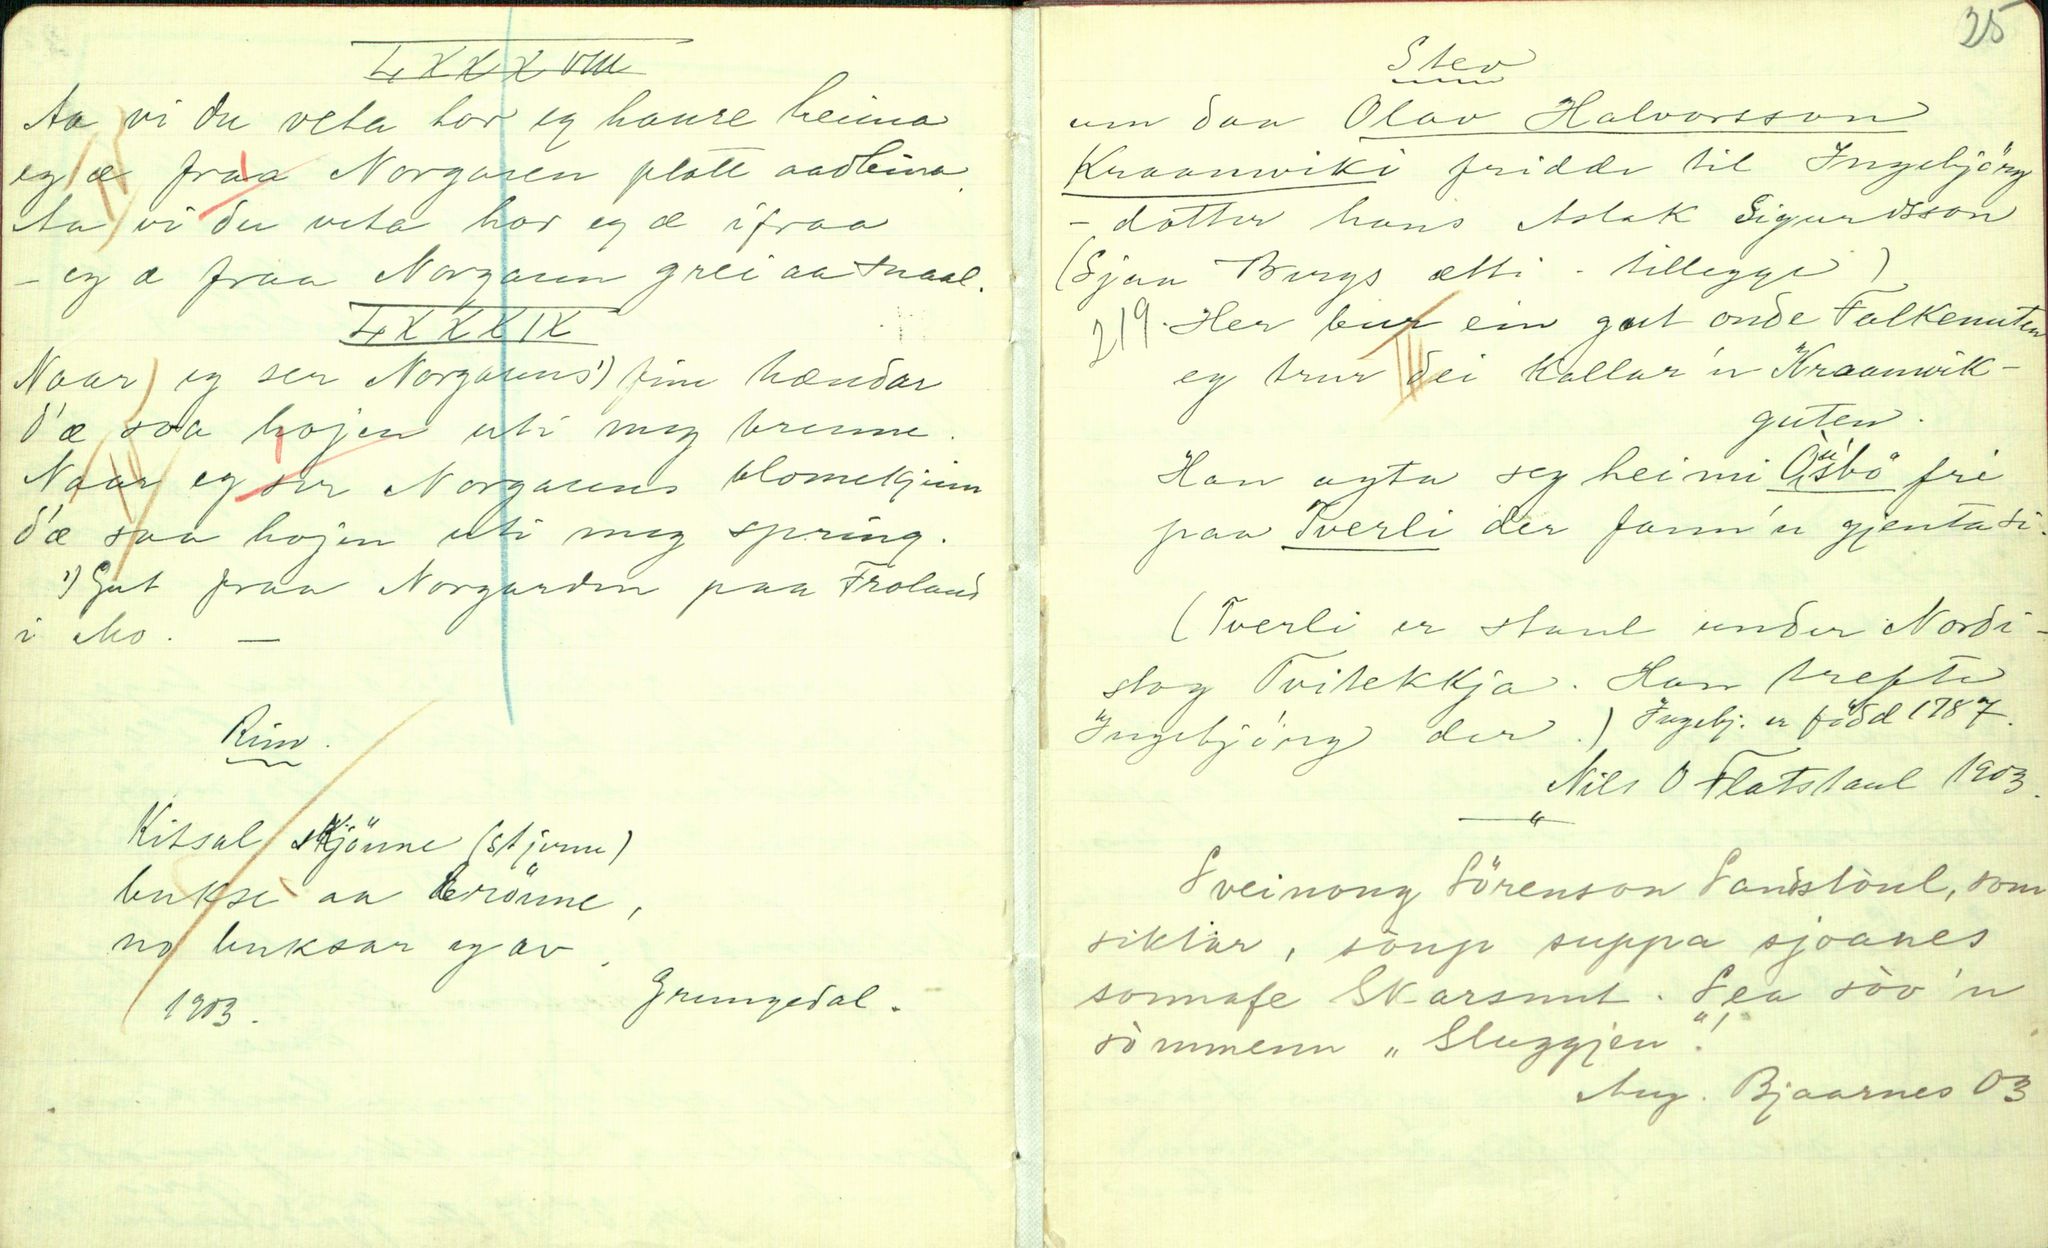 LXXXVIII
Aa vi du veta hor eg haure heima
eg æ fraa Norgaren platt aadleina.
Aa vi du veta hor eg æ ifraa
– eg æ fraa Norgaren grei aa snaal.
LXXXIX
Naar eg ser Norgarens ¹) fine hændar
d'æ soa hojen uti meg brenne.
Naar eg ser Norgarens blomekjinn
d'æ soa hojen uti meg spring.
¹) Gut fraa Norgarden paa Froland
i Mo. —
Rim.
Kitsal Kjönne (stjerne)
bukse aa brönne,
no buksar eg av.
1903. Grungedal.
25
Stev
um daa Olav Halvorsson
Kraamviki fridde til Ingebjörg
– dotter hans Aslak Sigurdsson
(Sjaa Burgs ætti - tillegge)
219. Her bur ein gut onde Falkenuten
eg trur dei kallar 'n Kraamvik-
guten.
Han agta seg heimi Ösbö fri
paa Tverli der fann 'n gjenta si.
(Tverli er staul under Nordi-
stog Tvitekkja. Han trefte
Ingebjörg der.) Ingebj. er född 1787.
Nils O Flatstaul 1903.
— " —
Sveinong Sörenson Sandstòul, som
siktar, sòup suppa sjoanes
sonnafe Skarsnut. Sea sòv 'n
sòmmenn „Sluggjen"!
Aug. Bjaarnes 03